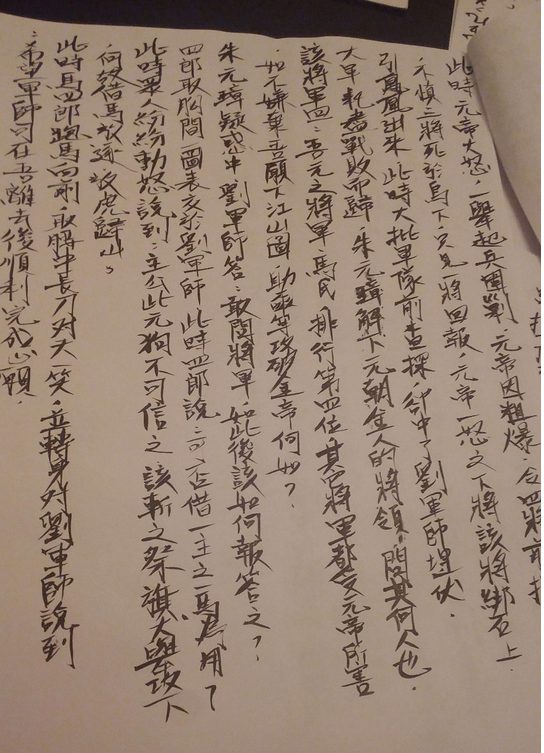 此時元帝大怒，一舉起兵圍剿，元帝因粗爆，令四將前
不慎三將死於馬下，只見一將回報，元帝一怒之下將該將綁石上
引鳳凰出來，此時大批軍隊前查探，卻中了劉軍師埋伏，
大軍 戰敗而歸，朱元璋解下元朝金人的將領，問其何人也，
該將軍曰：吾元之將軍，馬氏排行第四位，其四將軍都令元帝所害
如不嫌棄吾願下江山圖助 攻破金帝何如？
朱元璋疑惑中劉軍師答：敢問將軍，如此後該如何報答之？
四郎取胸間一圖表交於劉軍師，此時四郎說：可否借一主之一馬為用？
此時眾人紛紛動怒說到：主公此元狗不可信之，該斬之祭旗大舉攻下
何須借馬 逃放虎歸山。
此時馬四郎跪馬四前，取解中長刀對天一笑，並轉身對劉軍師說到
：希望軍師可在吾離去後順利完成心願